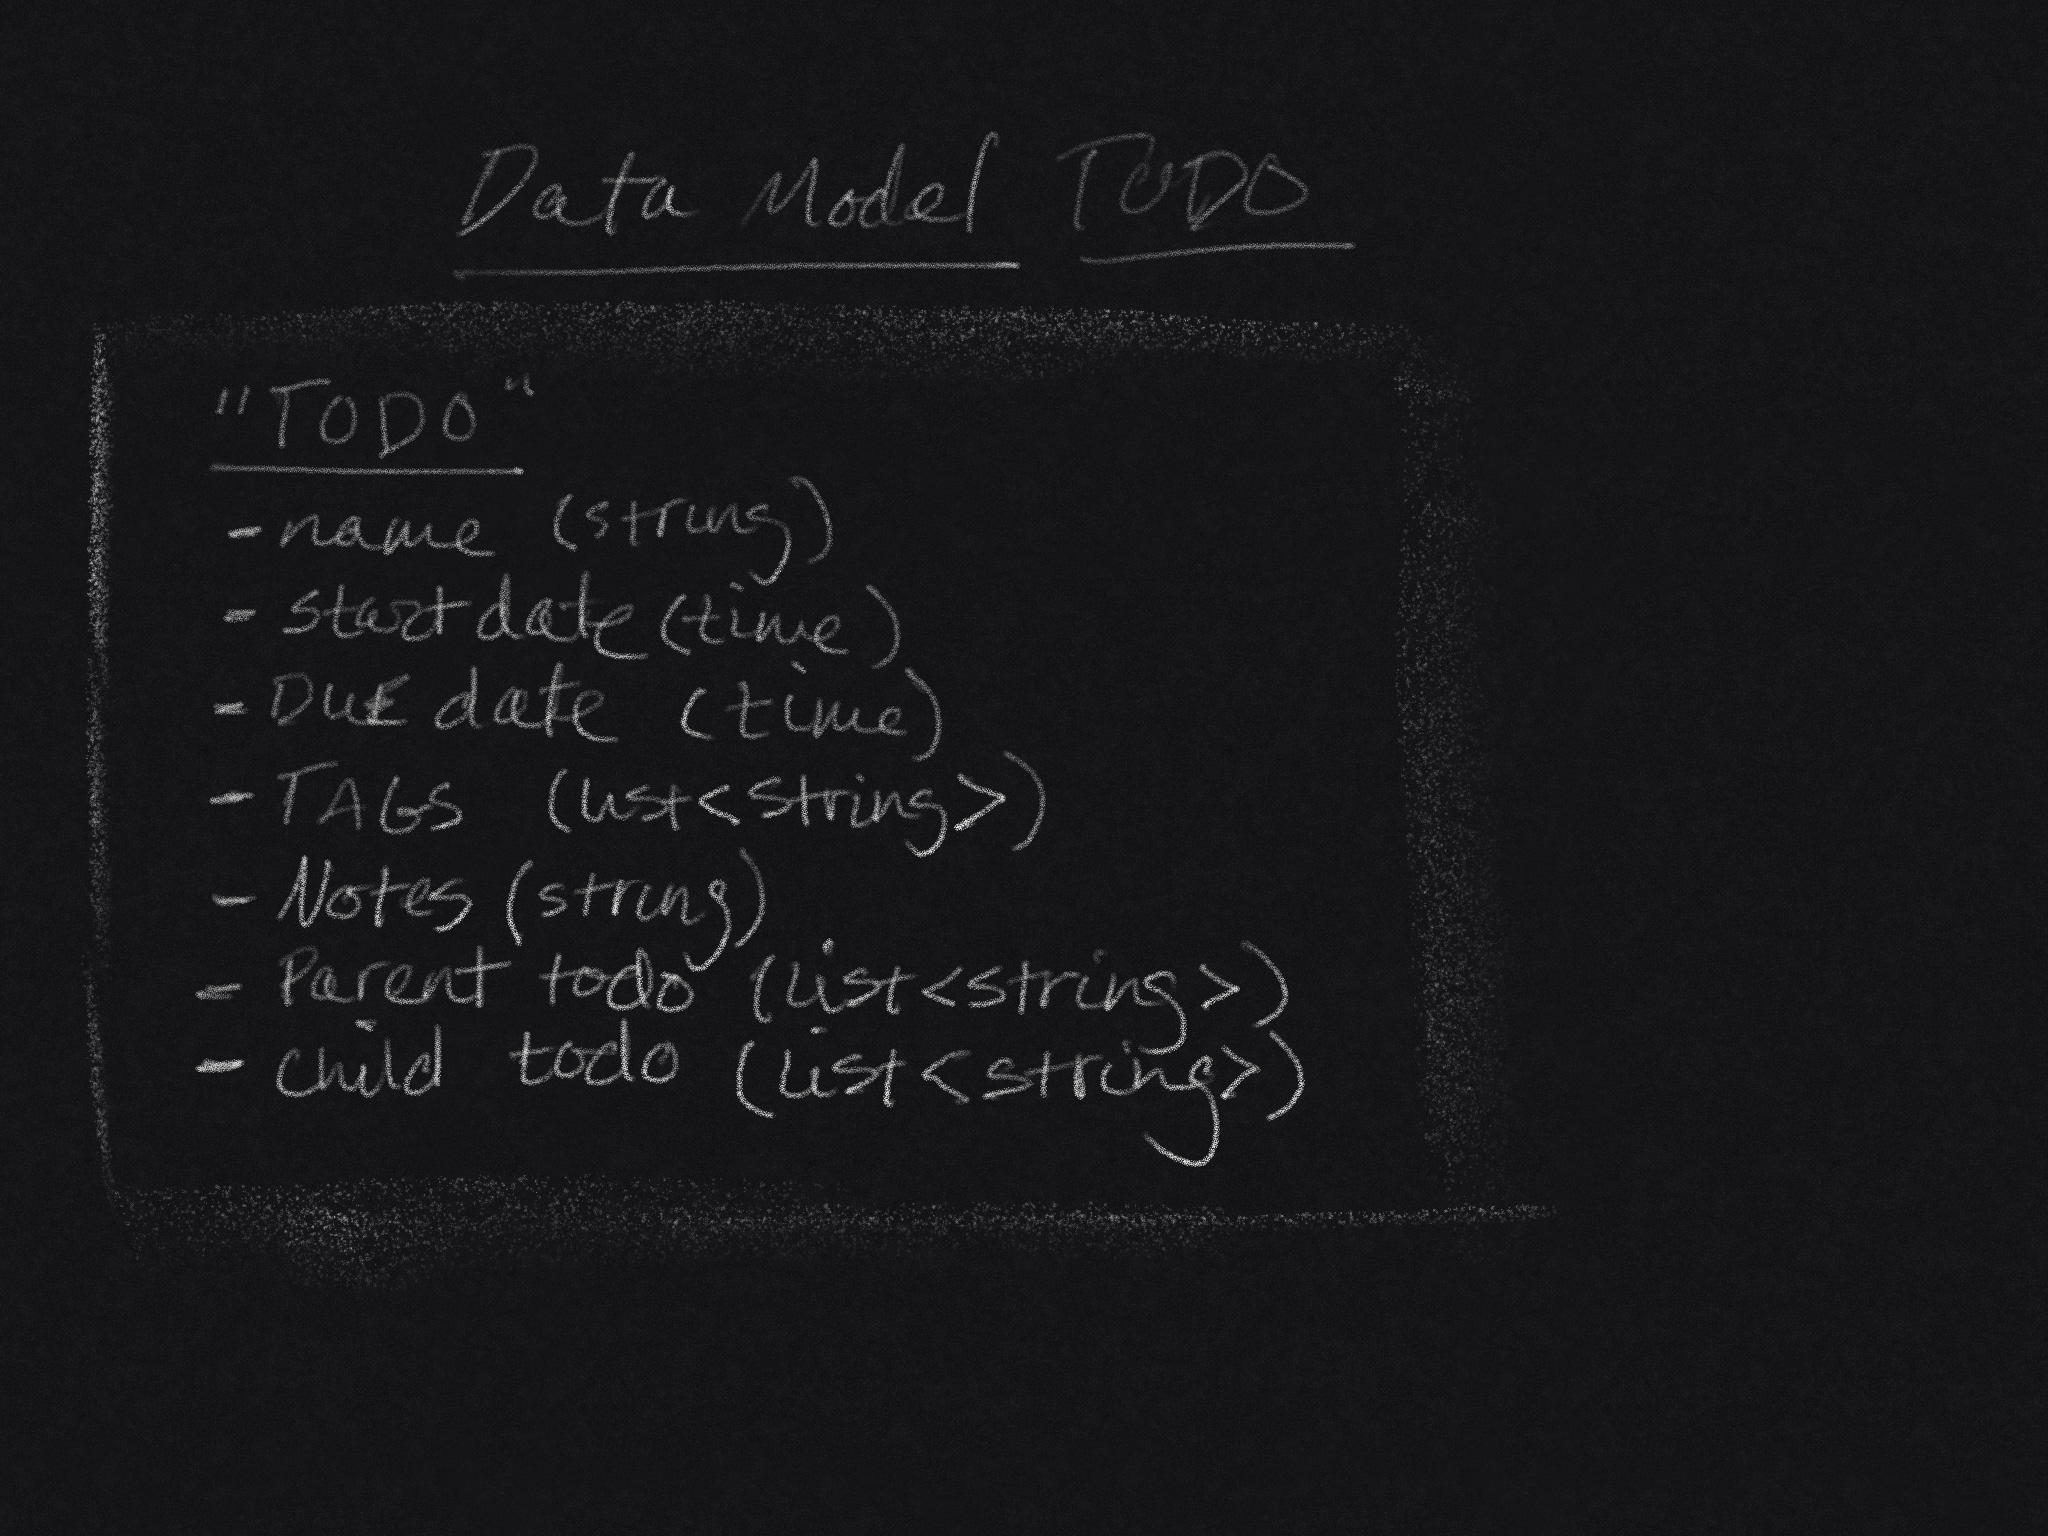 Data Model TODO
"TODO"
- name (string)
- start date (time)
- DUE date (time)
- TAGS (list<string>)
- Notes (string)
- Parent todo (list<string>)
- child todo (list<string>)